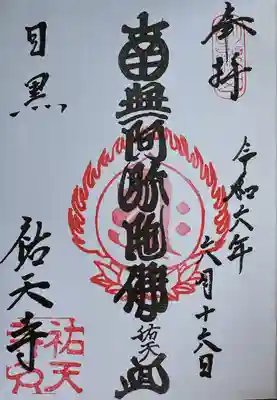 奉拝
令和六年
六月十六日
南無阿弥陀佛
祐天
目黒
祐天寺